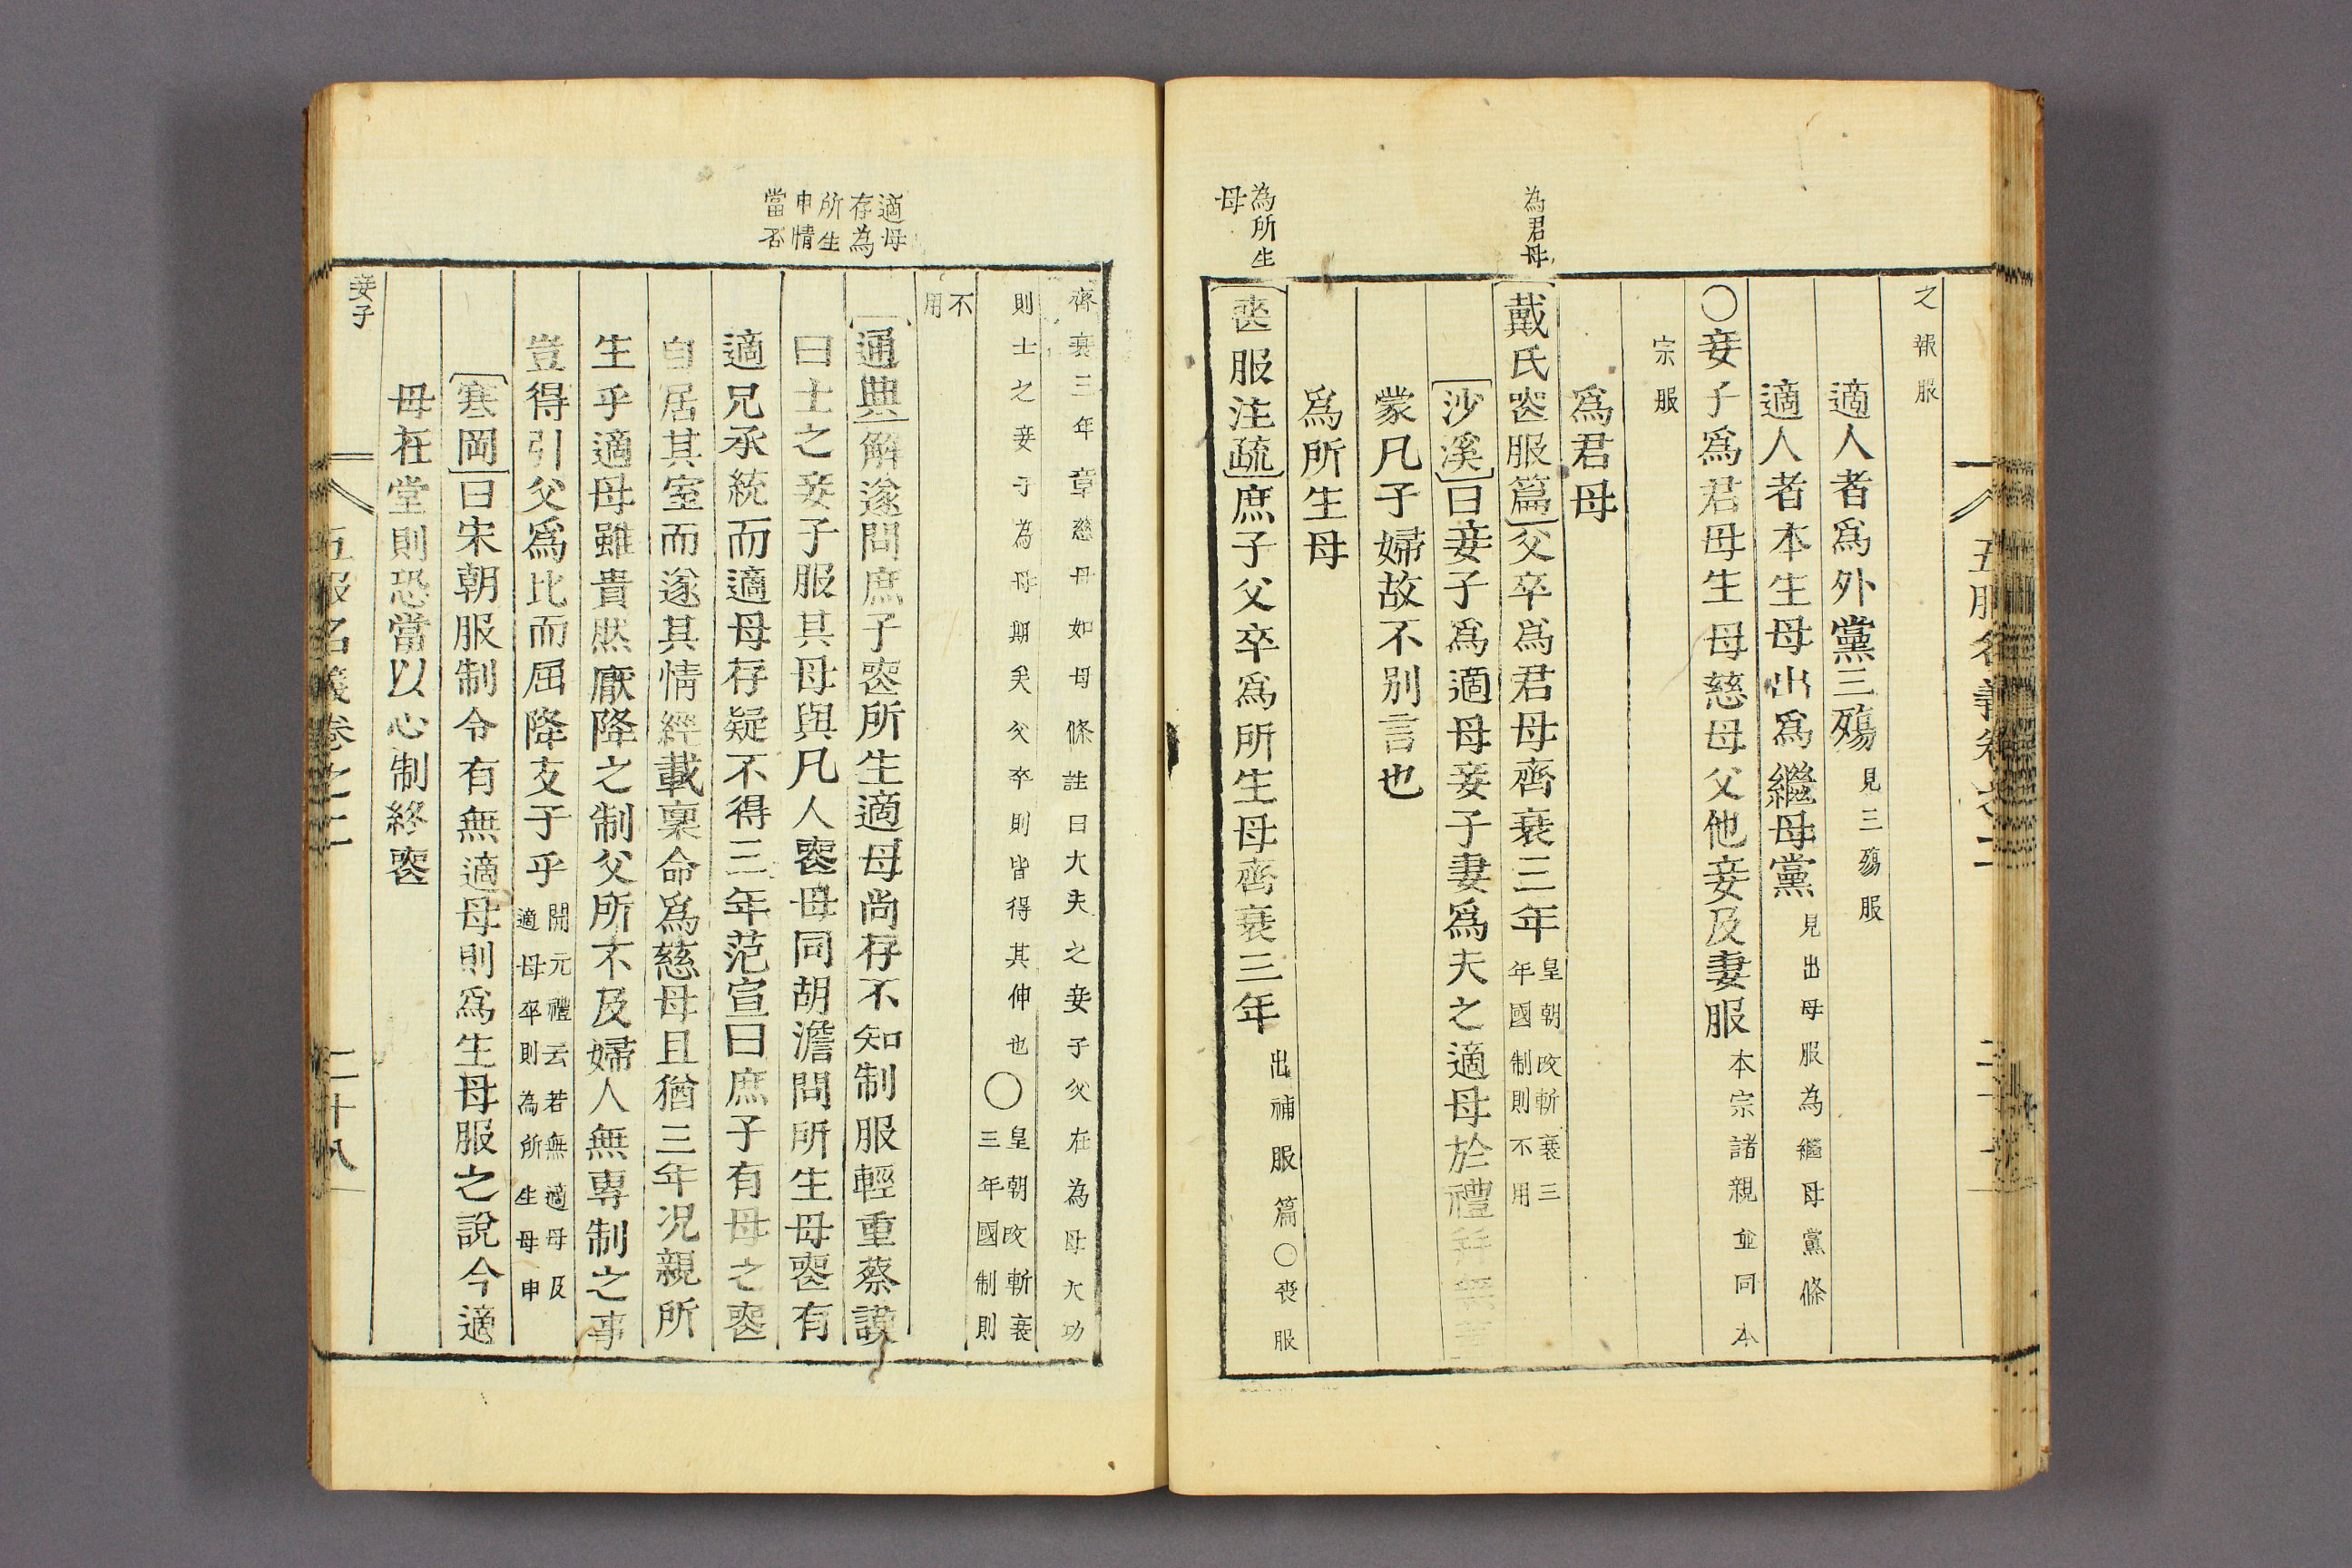 五服名義卷之二
之報服
適人者爲外黨三殤見三殤服
適人者本生母出爲繼母黨見出母服為繼母黨條
○妾子爲君母生母慈母父他妾及妻服本宗諸親並同本
宗服
爲君母
為君母
戴氏喪服篇父卒爲君母齊衰三年皇朝改斬衰三
年國制則不用
沙溪曰妾子爲適母妾子妻爲夫之適母於禮
蒙凡子婦故不別言也
爲所生母
為所生
母
喪服注疏庶子父卒爲所生母齊衰三年出補服篇○喪服
齊衰三年章慈母如母條註曰大夫之妾子父在為母大功
則士之妾子為母期矣父卒則皆得其伸也○皇朝改斬衰
三年國制則
不
用
適母
存為
所生
申情
當否
通典解遂問庶子喪所生適母尚存不知制服輕重蔡謨
曰士之妾子服其母與凡人喪母同胡澹問所生母喪有
適兄承統而適母存疑不得三年范宣曰庶子有母之喪
自居其室而遂其情經載稟命爲慈母且猶三年况親所
生乎適母雖貴然厭降之制父所不及婦人無專制之事
豈得引父爲比而屈降支子乎開元禮云若無適母及
適母卒則為所生母申
寒岡曰宋朝服制令有無適母則爲生母服之說今適
母在堂則恐當以心制終喪
妾子
五服名義卷之二
二十八